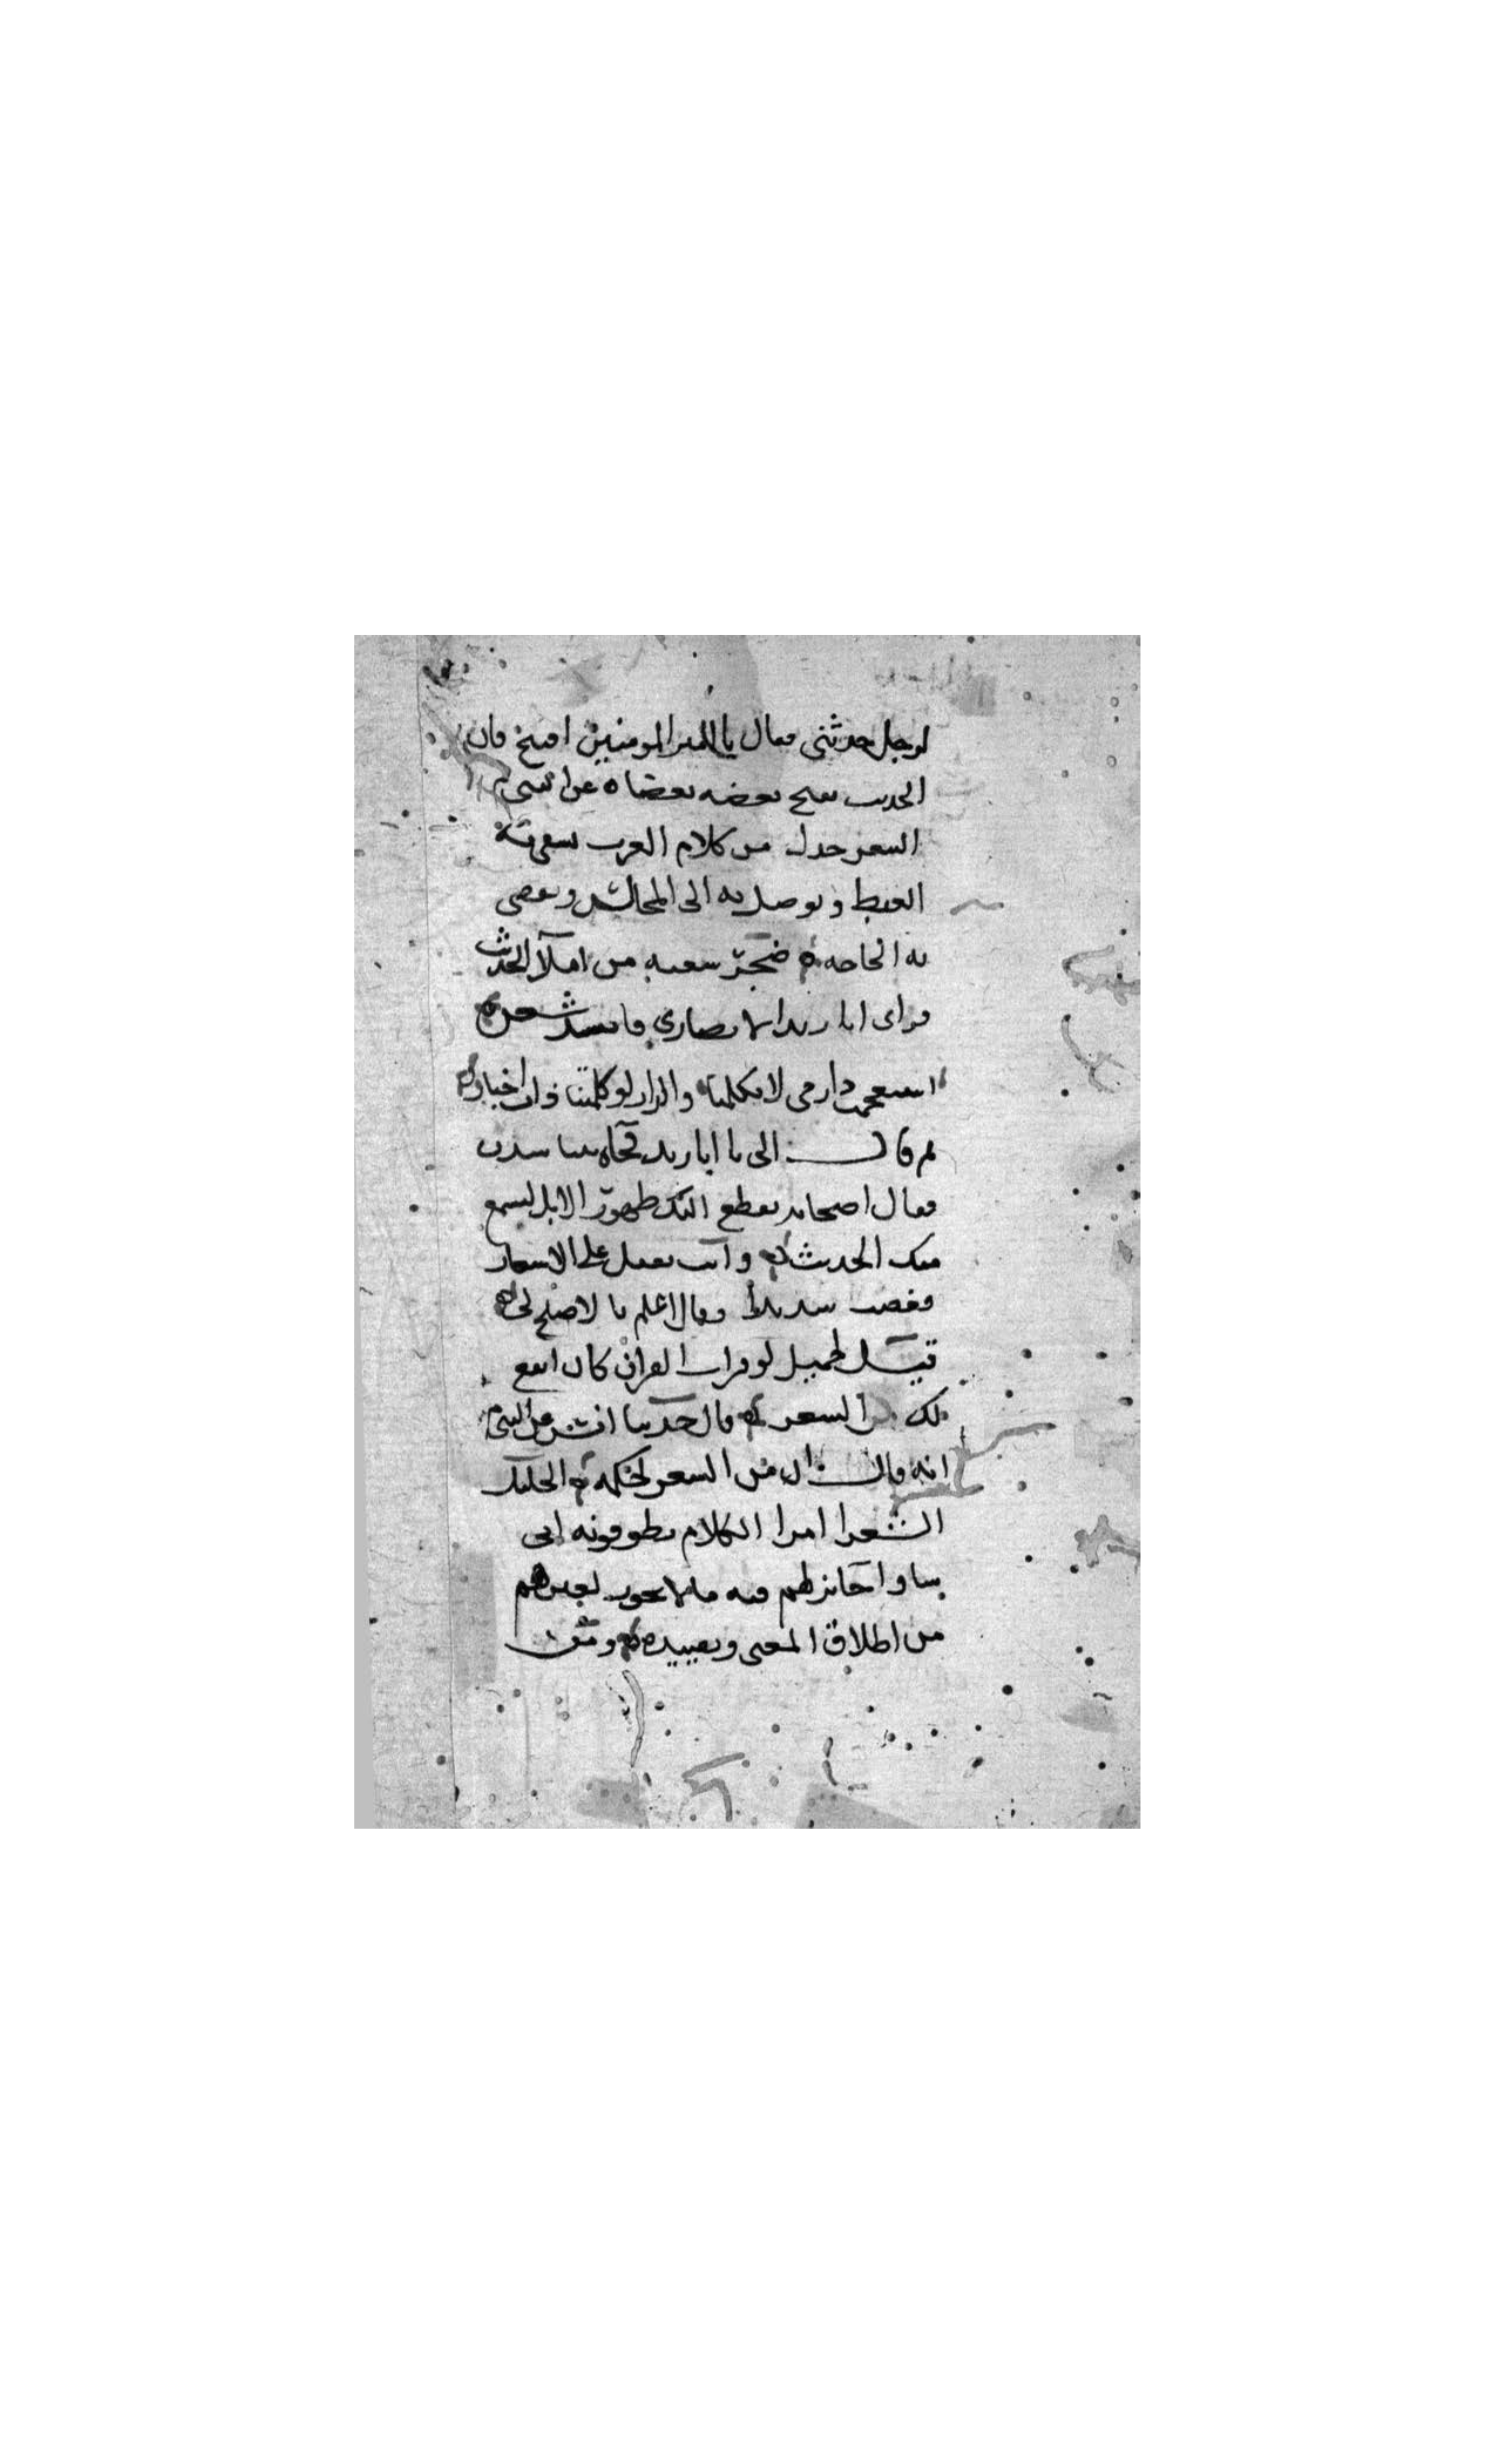 لرجل حدثني فقال يا امير المومنين افتح فان
الحديث يفتح بعضه بعضا ه عن النبي
الشعر جزل من كلام العرب يشفى به
الغيظ ويوصل به الى المجالس ويقضى
به الحاجة ه ضجر شعبه من املاء الحديث
فراى ابا زيد الانصاري فانشد شعرا
استعجمت دار مي لا تكلمنا والدار لو كلمتنا ذات اخبار
ثم قال الي يا ابا زيد فجاه
فقال اصحابه نقطع اليك ظهور الابل لنسمع
منك الحديث وانت تقبل على الاشعار
فغضب شديدا وقال انا اعلم بالاصلح لي
قيل لجميل لو قرات القران كان انفع
لك من الشعر قال حدثنا انس عن النبي
انه قال ان من الشعر لحكمه الخليل
الشعرا امرا الكلام يصرفونه انى
شاوا جائز لهم فيه ما لا يجوز لغيرهم
من اطلاق المعنى وتقييده ومن